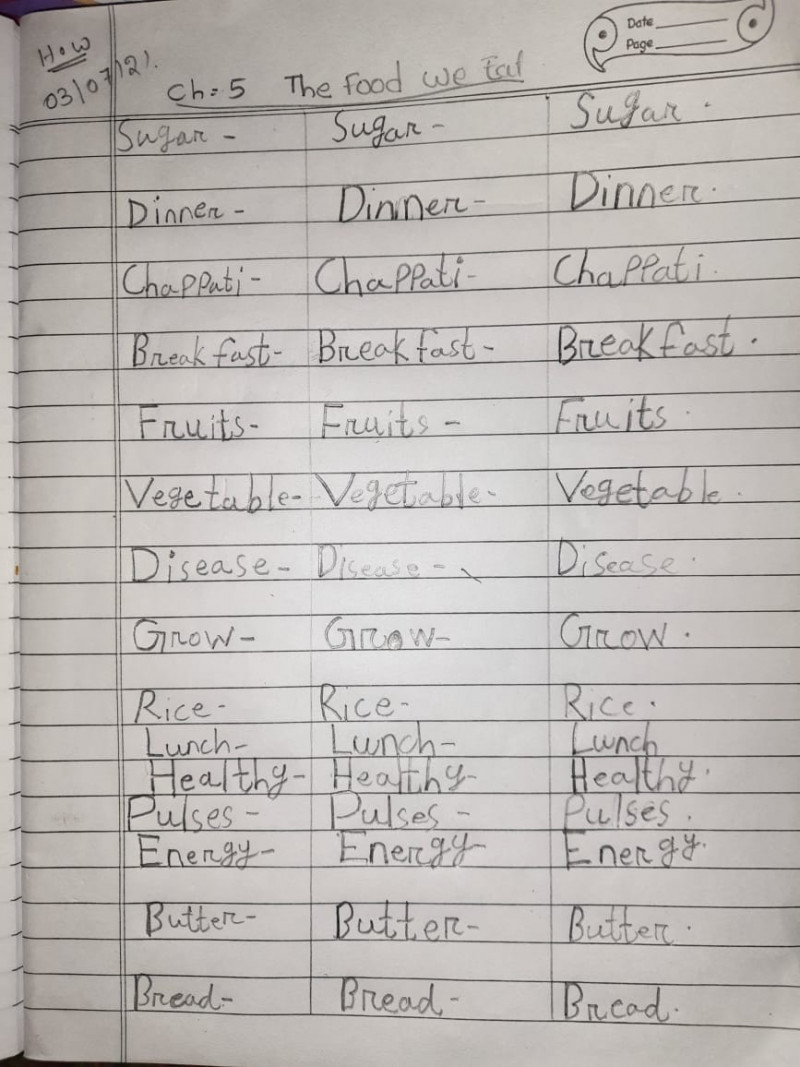 H.W
03/07/21.
Date
Page
Ch:5 The Food We Eat
Sugar - Sugar - Sugar.
Dinner - Dinner - Dinner.
Chappati - Chappati - Chappati.
Breakfast - Breakfast - Breakfast.
Fruits - Fruits - Fruits.
Vegetable - Vegetable - Vegetable.
Disease - Disease - Disease.
Grow - Grow - Grow.
Rice - Rice - Rice.
Lunch - Lunch - Lunch
Healthy - Healthy - Healthy.
Pulses - Pulses - Pulses.
Energy - Energy - Energy.
Butter - Butter - Butter.
Bread - Bread - Bread.